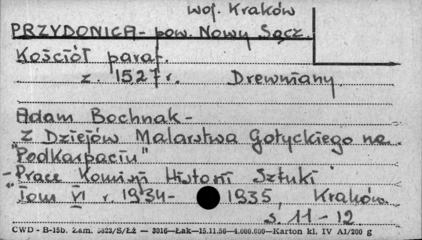 woj. Kraków
PRZYDONICA - pow. Nowy Sącz.
Kościół paraf.
z. 1527 r. Drewniany.
Adam Bochnak -
Z Dziejów Malarstwa Gotyckiego na
"Podkarpaciu"
- Prace Komisji Historii Sztuki
Tom VI r. 1934- 1935, Kraków.
s. 11 - 12
CWD - B-15b. Zam. 5822/S/ŁŻ - 3016-Łak-15.11.56-4.000.000-Karton kl. IV A1/200 g